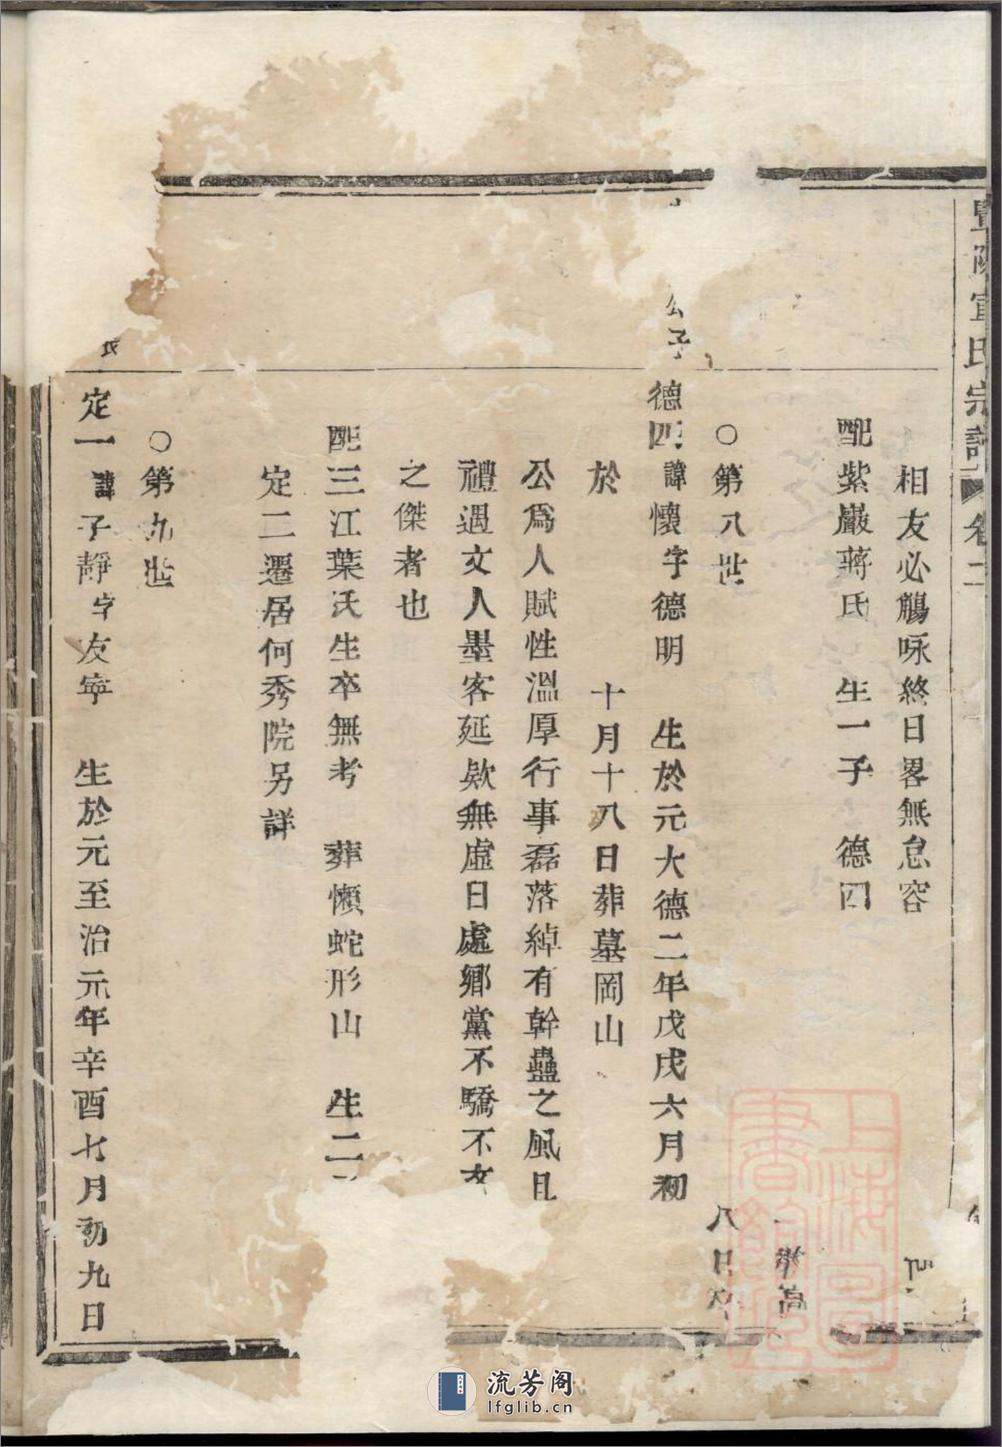 暨陽宣氏宗譜 卷二
相友必觴咏終日畧無怠容
配紫巖蔣氏 生一子 德四
○第八世
公子
德四 諱懷字德明 生於元大德二年戊戌六月初
八日
於 十月十八日葬墓岡山
公為人賦性溫厚行事磊落綽有幹蠱之風且
禮遇文人墨客延欵無虛日處鄉黨不驕不
之傑者也
配三江葉氏生卒無考 葬懶蛇形山 生二
定二遷居何秀院另詳
○第九世
定一 諱子靜字友寧 生於元至治元年辛酉七月初九日
上海圖書館藏
流芳阁
lfglib.cn